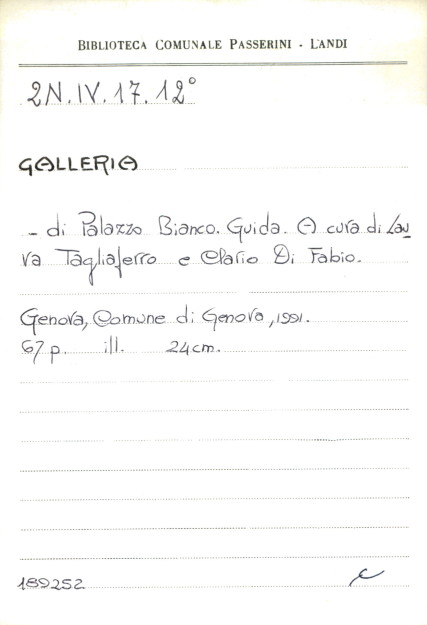 BIBLIOTECA COMUNALE PASSERINI - LANDI
2N.IV.17.12°
GALLERIA
- di Palazzo Bianco. Guida. A cura di Lau
ra Tagliaferro e Clario Di Fabio.
Genova, Comune di Genova, 1991.
67 p. ill. 24 cm.
189252